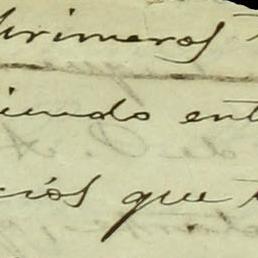 primeros
iendo ent
cios que